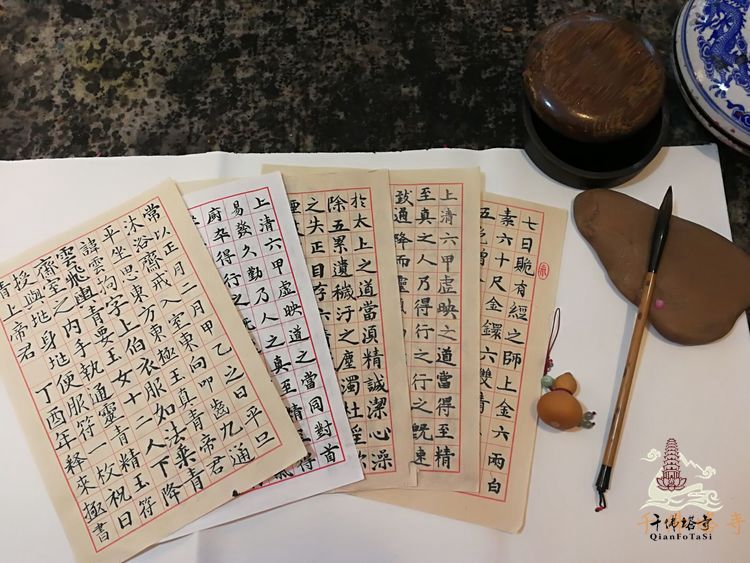 常以正月二月甲乙之日平旦
沐浴齋戒入室東向叩齒九通
平坐思東方東極玉真青帝君
諱雲拘字上伯衣服如法乘青
雲飛輿青要玉女十二人下降
齋室之內手執通靈青精玉符
授與地身地便服符一枚祝曰
青上帝君
丁酉年釋來極書
上清六甲虛映道之當同對首
易發久勤乃人之真至精
廚卒得行之
於太上之道當須精誠潔心澡
除五累遺穢汙之塵濁杜淫
之失正目存六
上清六甲虛映之道當得至精
至真之人乃得行之行之既速
致通降而靈
七日跪有經之師上金六兩白
素六十尺金鐶六雙青
千佛塔寺
QianFoTaSi